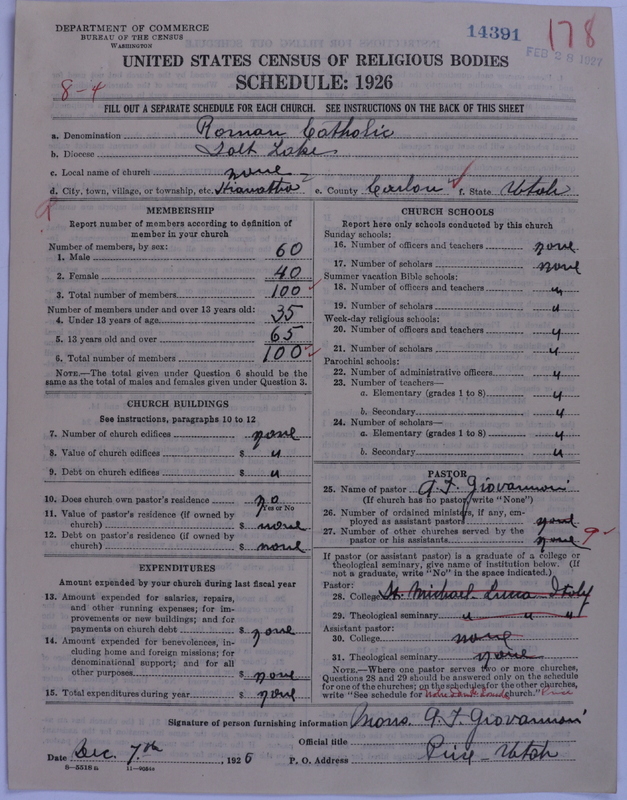 DEPARTMENT OF COMMERCE
BUREAU OF THE CENSUS
WASHINGTON
14391
178
FEB 28 1927
UNITED STATES CENSUS OF RELIGIOUS BODIES
SCHEDULE: 1926
8-4
FILL OUT A SEPARATE SCHEDULE FOR EACH CHURCH. SEE INSTRUCTIONS ON THE BACK OF THIS SHEET
a. Denomination Roman Catholic
b. Diocese Salt Lake
c. Local name of church none
d. City, town, village, or township, etc. Hiawatha e. County Carbon f. State Utah
MEMBERSHIP
Report number of members according to definition of
member in your church
Number of members, by sex:
1. Male 60
2. Female 40
3. Total number of members 100
Number of members under and over 13 years old:
4. Under 13 years of age 35
5. 13 years old and over 65
6. Total number of members 100
NOTE.—The total given under Question 6 should be
same as the total of males and females given under Question 3.
CHURCH BUILDINGS
See instructions, paragraphs 10 to 12
7. Number of church edifices none
8. Value of church edifices $ "
9. Debt on church edifices $ "
10. Does church own pastor's residence no
Yes or No
11. Value of pastor's residence (if owned by
church) $ none
12. Debt on pastor's residence (if owned by
church) $ none
EXPENDITURES
Amount expended by your church during last fiscal year
13. Amount expended for salaries, repairs,
and other running expenses; for im-
provements or new buildings; and for
payments on church debt $ none
14. Amount expended for benevolences, in-
cluding home and foreign missions; for
denominational support; and for all
other purposes $ none
15. Total expenditures during year $ none
CHURCH SCHOOLS
Report here only schools conducted by this church
Sunday schools:
16. Number of officers and teachers none
17. Number of scholars none
Summer vacation Bible schools:
18. Number of officers and teachers "
19. Number of scholars "
Week-day religious schools:
20. Number of officers and teachers "
21. Number of scholars "
Parochial schools:
22. Number of administrative officers "
23. Number of teachers—
a. Elementary (grades 1 to 8) "
b. Secondary "
24. Number of scholars—
a. Elementary (grades 1 to 8) "
b. Secondary "
PASTOR
25. Name of pastor A. F. Giovannoni
(If church has no pastor, write "None")
26. Number of ordained ministers, if any, em-
ployed as assistant pastors none
27. Number of other churches served by the
pastor or his assistants none 9
If pastor (or assistant pastor) is a graduate of a college or
theological seminary, give name of institution below. (If
not a graduate, write "No" in the space indicated.)
Pastor:
28. College St. Michael Lucca Italy
29. Theological seminary " " "
Assistant pastor:
30. College none
31. Theological seminary none
NOTE.—Where one pastor serves two or more churches,
Questions 28 and 29 should be answered only on the schedule
for one of the churches; on the schedules for the other churches,
write "See schedule for church." Price
Signature of person furnishing information Mons. A. F. Giovannoni
Official title
Date Dec. 7.th, 1926 P. O. Address Price - Utah
8-5518a 11-9054a